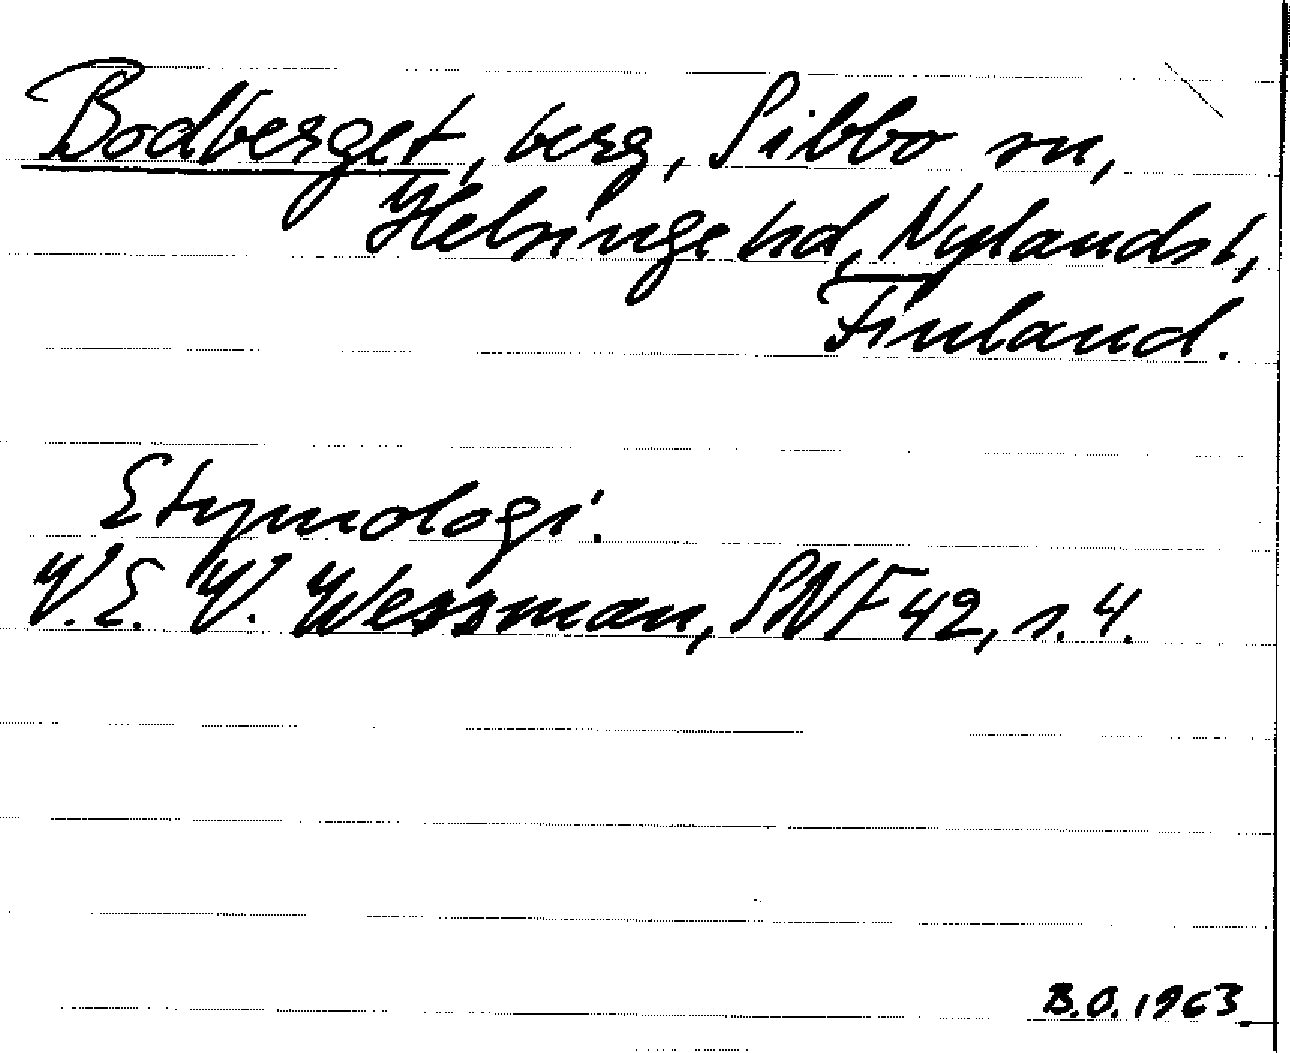 Bodberget, berg, Sibbo sn,
Helsinge hd, Nylands l,
Finland.
Etymologi.
V. E. V. Wessman, SNF 42, s. 4.
B.O. 1963